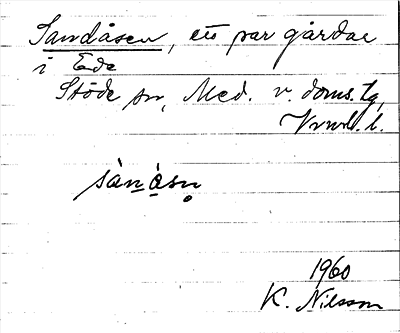 Sandåsen, ett par gårdar
i Ede
Stöde sn, Med. v. doms. tg,
Vnrl. l.
sànåsn
1960
K. Nilsson